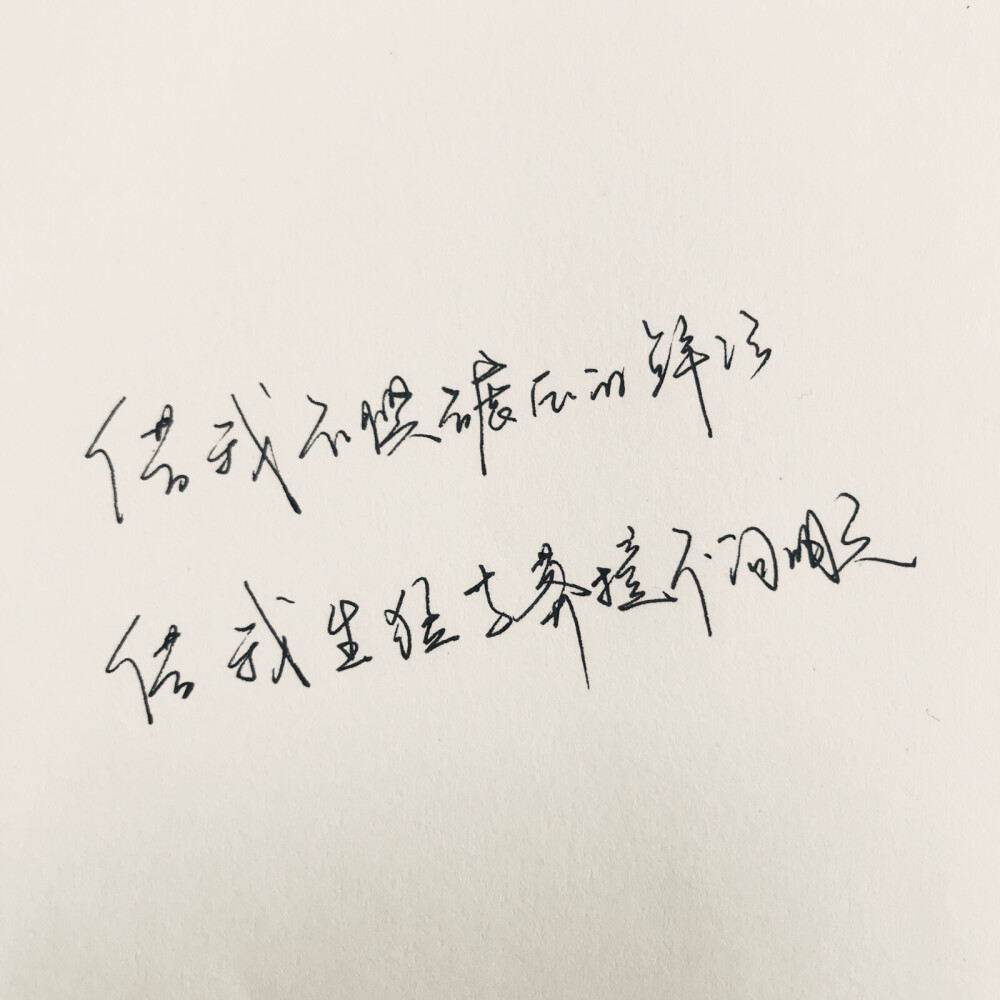 借我不惧碾压的鲜活
借我生猛与莽撞不问明天